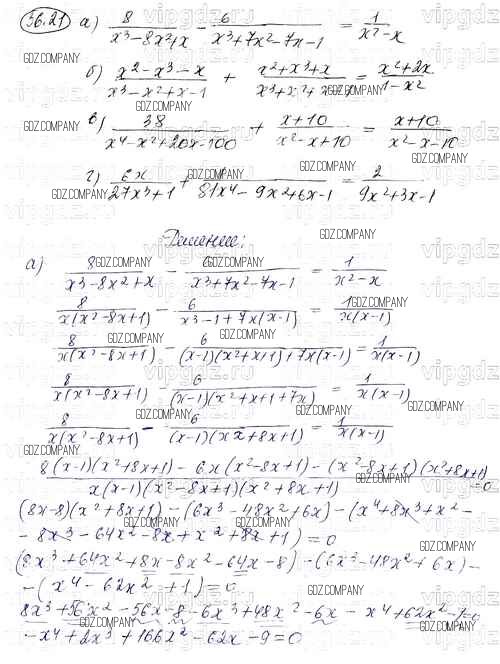 36.21 а) 8/(x³-8x²+x) - 6/(x³+7x²-7x-1) = 1/(x²-x)
б) (x²-x³-x)/(x³-x²+x-1) + (x²+x³+x)/(x³+x²+x+1) = (x²+2x)/(1-x²)
в) 38/(x⁴-x²+20x-100) + (x+10)/(x²-x+10) = (x+10)/(x²-x-10)
г) 6x/(27x³+1) + /(81x⁴-9x²+6x-1) = 2/(9x²+3x-1)
Решение:
а) 8/(x³-8x²+x) - 6/(x³+7x²-7x-1) = 1/(x²-x)
8/(x(x²-8x+1)) - 6/(x³-1+7x(x-1)) = 1/(x(x-1))
8/(x(x²-8x+1)) - 6/((x-1)(x²+x+1)+7x(x-1)) = 1/(x(x-1))
8/(x(x²-8x+1)) - 6/((x-1)(x²+x+1+7x)) = 1/(x(x-1))
8/(x(x²-8x+1)) - 6/((x-1)(x²+8x+1)) = 1/(x(x-1))
(8(x-1)(x²+8x+1) - 6x(x²-8x+1) - (x²-8x+1)(x²+8x+1))/(x(x-1)(x²-8x+1)(x²+8x+1)) = 0
(8x-8)(x²+8x+1) - (6x³-48x²+6x) - (x⁴+8x³+x²-
-8x³-64x²-8x+x²+8x+1) = 0
(8x³+64x²+8x-8x²-64x-8) - (6x³-48x²+6x) -
-(x⁴-62x²+1) = 0
8x³+56x²-56x-8-6x³+48x²-6x-x⁴+62x²-1=0
-x⁴+2x³+166x²-62x-9=0
GDZ.COMPANY
vipgdz.ru